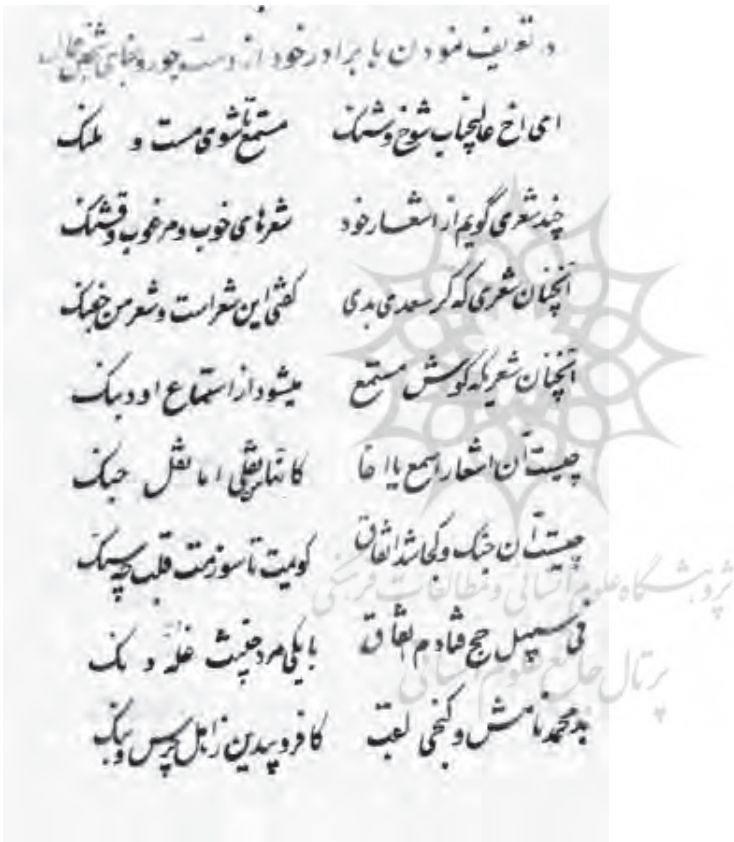 در تعریف نمودن با برادر خود از دست جور و جفای شخص
ای اخ عالیجناب شوخ و شنگ مستمع تا شوی مست و ملنگ
چند شعری گویم از اشعار خود شعرهای خوب و مرغوب و قشنگ
آنچنان شعری که گر سعدی بدی گفتی این شعر است و شعر من جفنگ
آنچنان شعریکه گوش مستمع میشود از استماع او دبنگ
چیست آن اشعار اسمع یا اخا کانها نقلی اما نقل جنگ
چیست آن جنگ و کجا شد اتفاق گویمت تا سوزدت قلب چه سنگ
فی سبیل حج فتادم اتفاق با یکی مرد خبیث
بد محمد نامش و گنجی لقب کافر و بیدین ز اهل چرس و بنگ
پژوهشگاه علوم انسانی و مطالعات فرهنگی
پرتال جامع علوم انسانی